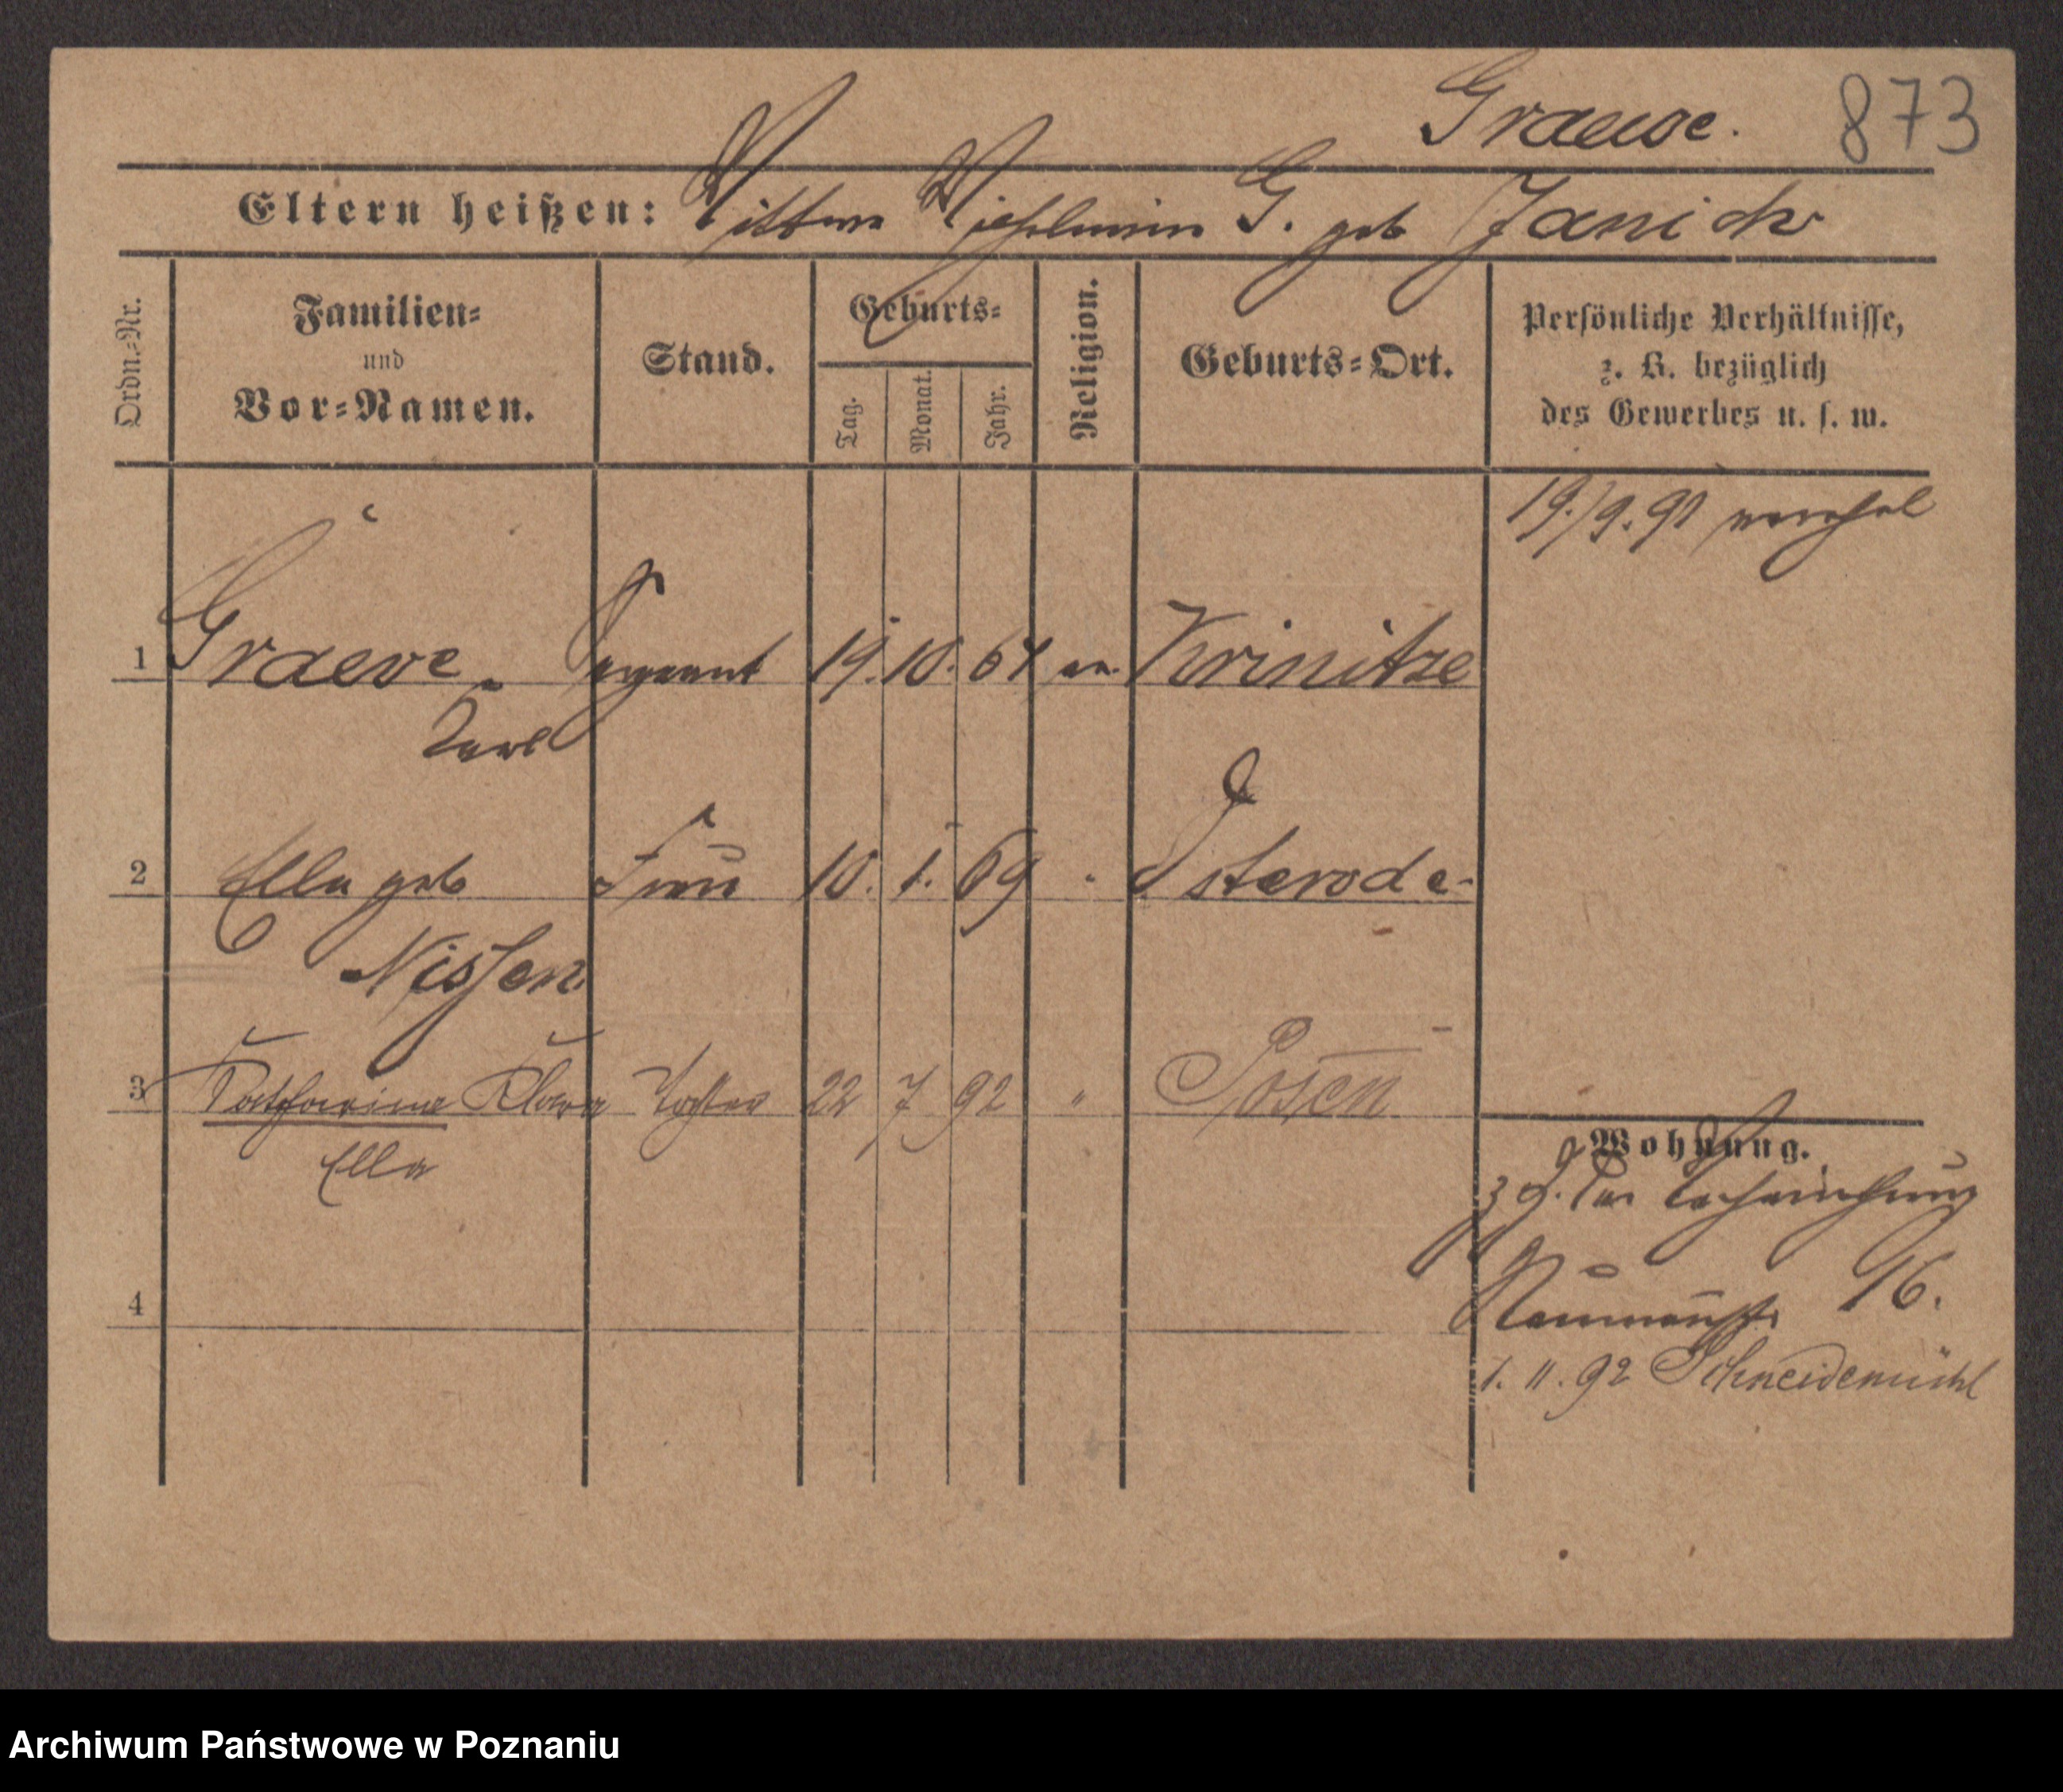 Graeve. 873
Eltern heißen: G. geb Janick
Ordn.-Nr.
Familien-
und
Vor-Namen.
Stand.
Geburts-
Tag.
Monat.
Jahr.
Religion.
Geburts-Ort.
Persönliche Verhältnisse,
z. B. bezüglich
des Gewerbes u. s. w.
19./9. 91
1 Graeve Sergeant 19. 10. 64 ev. Krinitze
Karl
2 Ella geb Frau 10. 1. 69 " Osterode
Nissen
3 Katharina Klara Tochter 22 7 92 " Posen
Ella
Wohnung.
4
16.
1. 11. 92 Schneidemühl
Archiwum Państwowe w Poznaniu